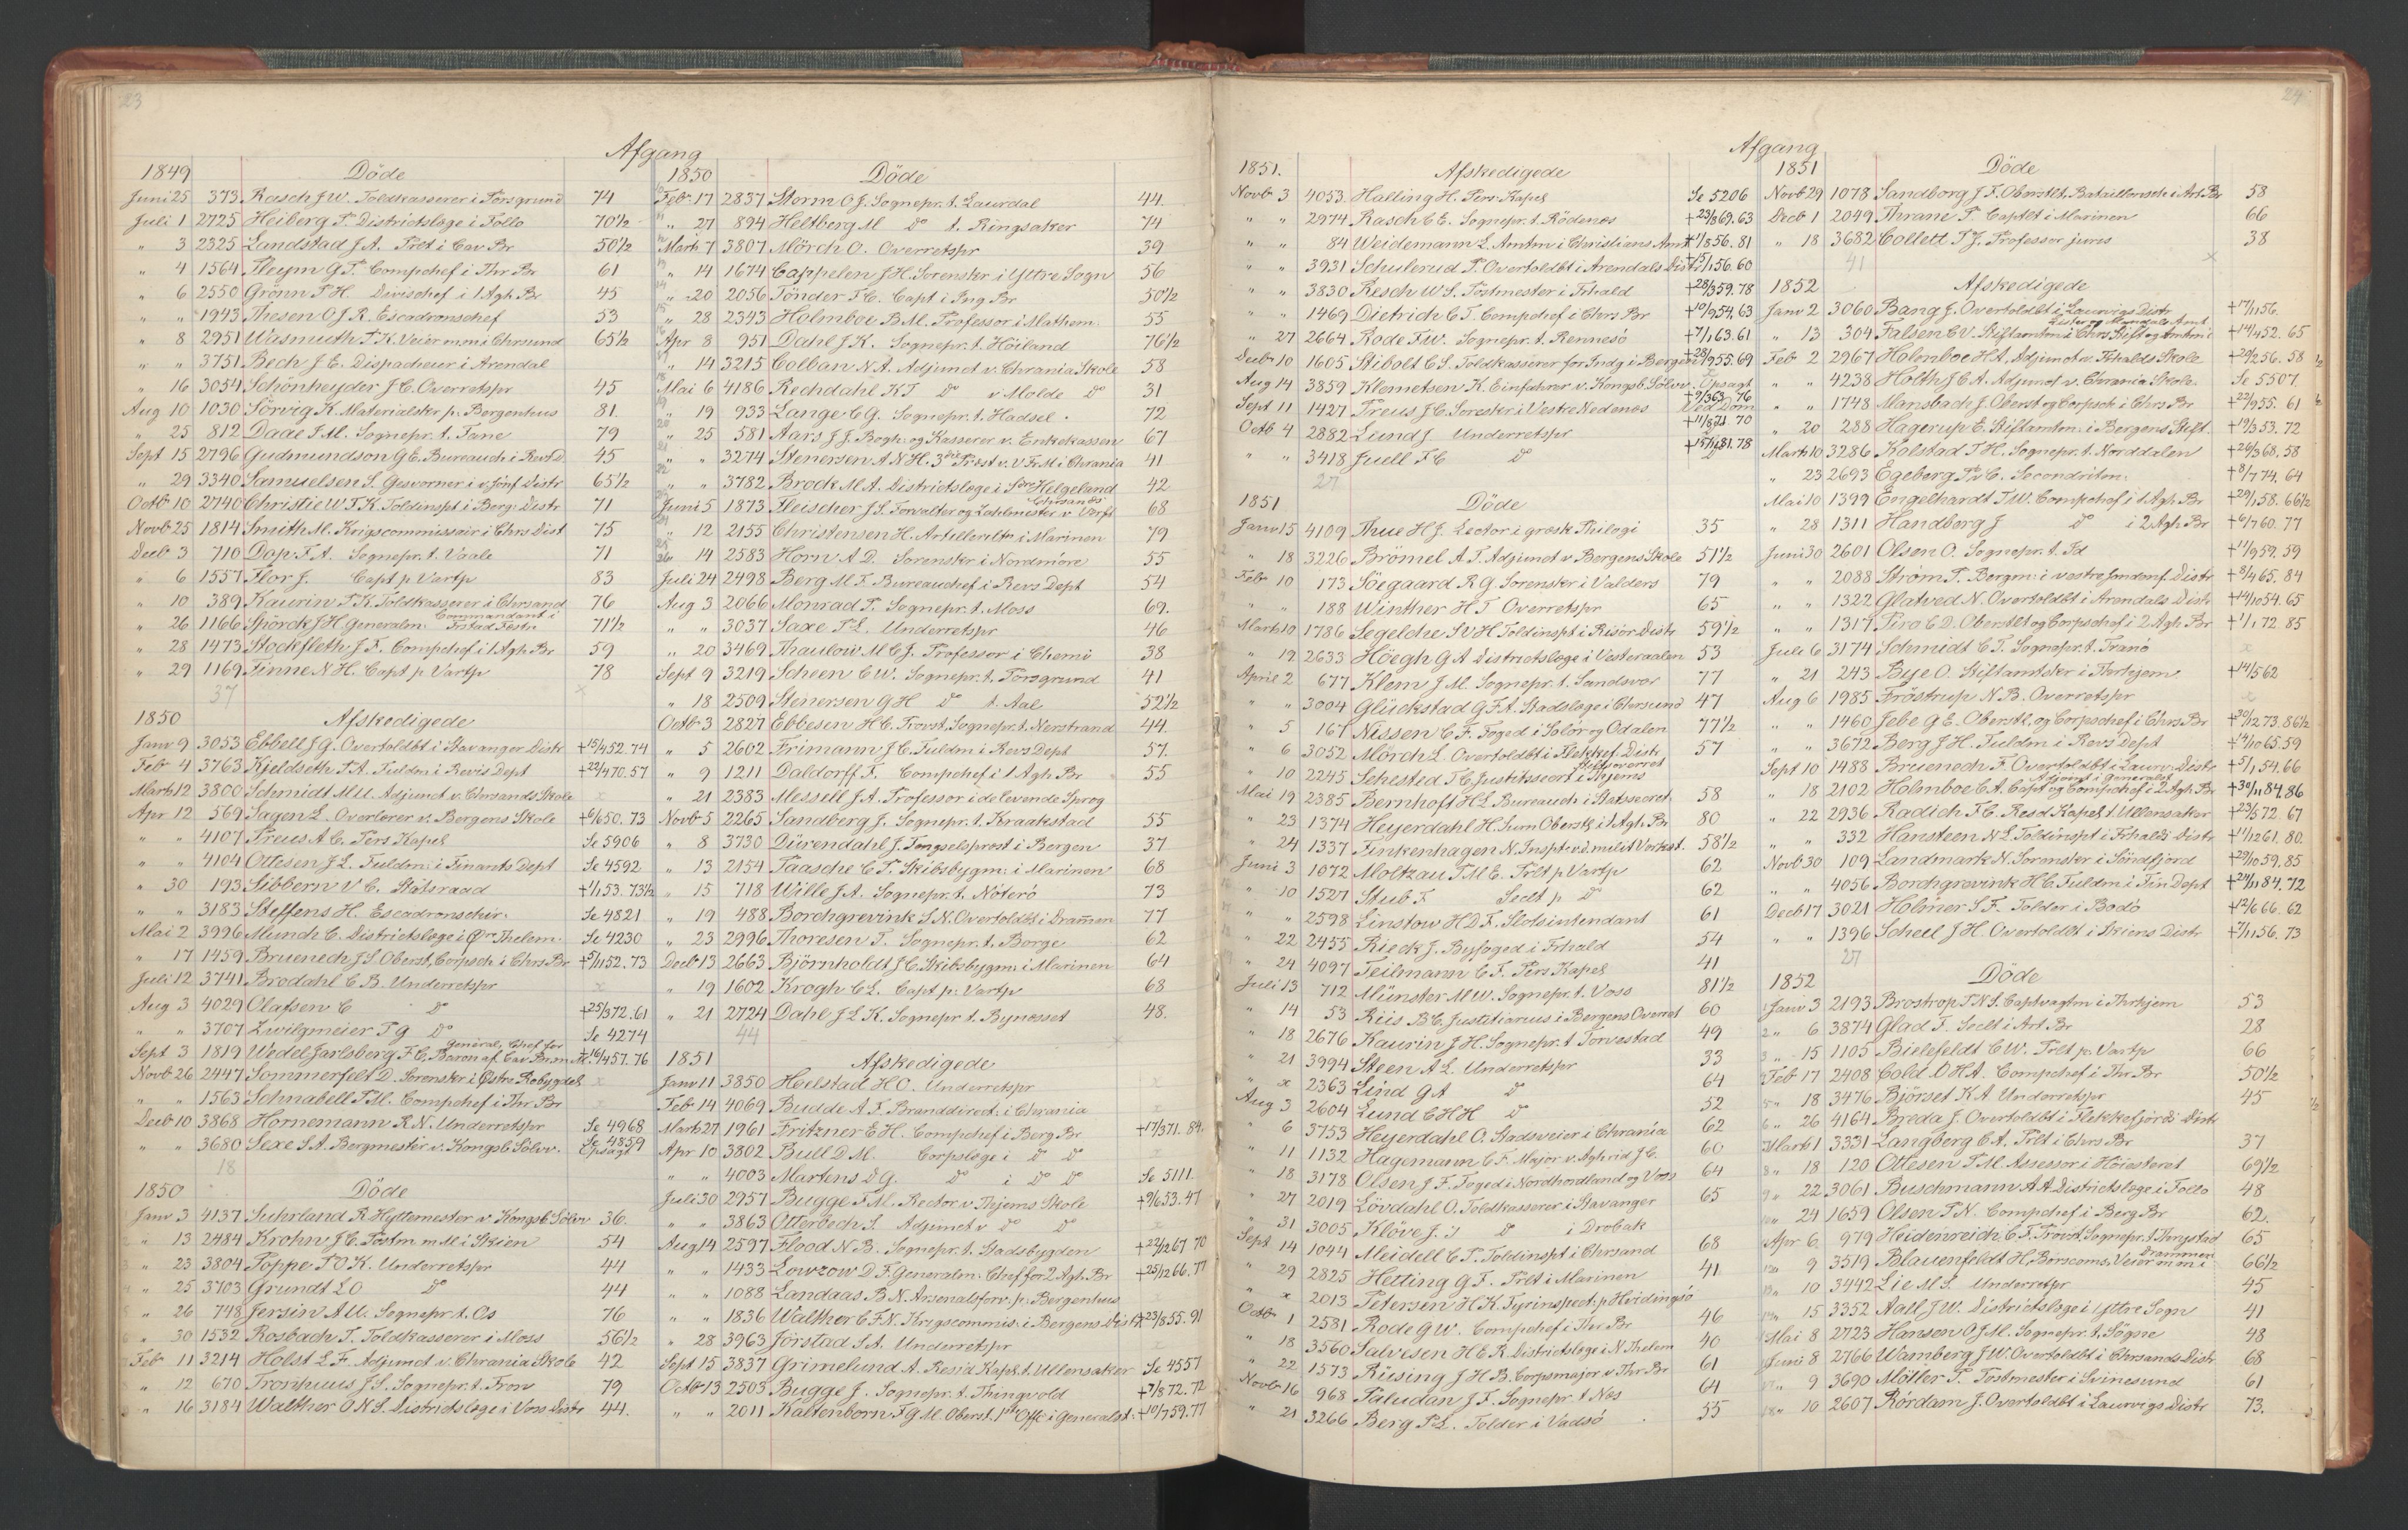 23
Afgang
1849 Döde
Juni 25 373 Rasch J W. Toldkasserer i Porsgrund 74
Juli 1 2725 Heiberg P. Districtslæge i Follo 70½
" 3 2325 Landstad J A. Prlt i Cav Br 50½
" 4 1564 Fleym G P. Compchef i Thr Br 61
" 6 2550 Grönn P H. Divischef i 1 Agh Br 45
" " 1943 Thesen O J R. Escadronschef 53
" 8 2951 Wasmuth P K. Veier m.m i Chrsund 65½
" " 3751 Bech J E. Dispacheur i Arendal
" 16 3054 Schönheyder J C. Overretspr 45
Aug 10 1030 Sörvig K. Materialskr p. Bergenhus 81.
" 25 812 Daae J M. Sognepr. t. Fane 79
Sept 15 2796 Gudmundson G E. Bureauch. i Rev D. 45
" 29 3340 Samuelsen S. Gesvorner i v. Jonf. Distr 65½
Octb 10 2740 Christie W F K. Toldinspt i Berg. Distr 71
Novb 25 1814 Smith M. Krigscommissair i Chrs Dist 75
Decb 3 710 Dop F A. Sognepr. t. Vaale 71
" 6 1557 Flor J. Capt p Vartp 83
" 10 389 Kaurin P K. Toldkasserer i Chrsand 76
" 26 1166 Spörck J H. Generalm. Commandant i Frstad Festn 71½
" 28 1473 Stockfleth J F. Compchef i 1 Agh Br 59
" 29 1169 Finne N H. Capt p. Vartp 78
37 x
1850 Afskedigede
Janv 9 3053 Ebbell J G. Overtoldbt i Stavanger Distr +15/4 52.74
Feb 4 3763 Kjeldseth P A. Fuldm i Revis Dept +22/4 70.57
Marts 12 3800 Schmidt M U. Adjunct v. Chrsands Skole x
Apr 12 569 Sagen L. Overlærer v. Bergens Skole +6/6 50.73
" " 4107 Preus A C. Pers Kapel Se 5906
" " 4104 Ottesen J L. Fuldm. i Finants Dept Se 4592
" 30 193 Sibbern V C. Statsraad +1/1 53.73½
" " 3183 Steffens H. Escadronschir. Se 4821
Mai 2 3996 Munch C. Districtslæge i Ø̈ Thelem. Se 4230
" 17 1459 Bruenech J S. Oberst, Corpsch. i Chrs Br +5/11 52.73
Juli 12 3741 Brodahl C B. Underretspr x
Aug 3 4029 Olafsen C do +25/3 72.61
" " 3707 Zwilgmeier P G do Se 4274
Sept 3 1819 Wedel Jarlsberg F C, Baron af. General, Chef for Cav Br m.M. +16/4 57.76
Novb 26 2447 Sommerfelt D. Sorenskr. i Østre Robygdel x
" " 1563 Schnabell P M. Compchef i Thr Br x
Decb 10 3868 Hornemann R N. Underretspr Se 4968
" " 3680 Sexe S A. Bergmester v. Kongsb Sölvv. Se 4859 Opsagt
18
1850 Döde
Janv 3 4137 Suhrland R Hyttemester v. Kongsb Sölvv 36.
" 13 2484 Krohn J C. Postm m M i Skien 54
" 23 3804 Poppe P O K. Underretspr 44
" 25 3703 Grundt L O do 44
" 26 748 Jersin A U. Sognepr. t. Os 76
" 30 1532 Rosbach P. Toldkasserer i Moss 56½
Feb 11 3214 Holst L F. Adjunct v. Chrania Skole 42
" 12 670 Tronhuus J S. Sognepr. t. Fron 79
" 16 3184 Walther O N S. Districtslæge i Voss Distr 44.
1850 Döde
Feb 17 2837 Storm O J. Sognepr. t. Laurdal 44.
" 27 894 Heltberg M do t. Ringsaker 74
Marts 7 3807 Mörch O. Overretspr 39
" 14 1674 Cappelen J H. Sorenskr. i Yttre Sogn 56
" 20 2056 Tönder F C. Capt i Ing Br 50½
" 28 2343 Holmboe B M. Professor i Mathem. 55
Apr 8 951 Dahl J K. Sognepr. t. Höiland 76½
" 14 3215 Colban N A. Adjunct v. Chrania Skole 58
Mai 6 4186 Rechdahl K J do v Molde do 31
" 19 933 Lange C G. Sognepr. t. Hadsel 72
" 25 581 Aars J J. Bogh. og Kasserer v. Enkekassen 67
" " 3274 Stenersen A N H. 3die Præst v. V Fr M i Chrania 41
" " 3782 Brock M A. Districtslæge i Söre Helgeland 42
Juni 5 1873 Fleischer J S. Forvalter og Zahlmester v. Chrsands Værft 68
" 12 2155 Christensen H. Artillerilt i Marinen 79
" 14 2583 Horn A D. Sorenskr. i Nordmöre 55
Juli 24 2498 Berg M F. Bureauchef i Revs Dept 54
Aug 3 2066 Monrad P. Sognepr. t. Moss 69.
" " 3037 Saxe P L. Underretspr 46
" 20 3469 Thaulow M C J. Professor i Chemi 38
Sept 9 3219 Scheen C W. Sognepr. t. Porsgrund 41
" 18 2509 Stenersen G H do t. Aal 52½
Octb 3 2827 Ebbesen H C. Provst, Sognepr. t. Nerstrand 44.
" 5 2602 Frimann J C. Fuldm i Revs Dept 57.
" 9 1211 Daldorff F. Compchef i 1 Agh Br 55
" 21 2383 Messell J A. Professor i de levende Sprog
Novb 5 2265 Sandberg J. Sognepr. t. Kraakstad 55
" 8 3730 Dürendahl J. Fængselsprest i Bergen 37
" 13 2154 Paasche C P. Skibsbygm. i Marinen 68
" 15 718 Wille J A. Sognepr. t. Nöterö 73
" 19 488 Borchgrevink S N. Overtoldbt i Dramen 77
" 23 2996 Thoresen P. Sognepr. t. Borge 62
Decb 13 2663 Björnholdt J C. Skibsbygm. i Marinen 64
" 19 1602 Krogh C L. Capt p. Vartp 68
" 21 2724 Dahl J L K. Sognepr t. Bynesset 48.
44 x
1851 Afskedigede
Janv 11 3850 Helstad H O. Underretspr x
Feb 14 4069 Budde A F. Branddirect. i Chrania x
Marts 27 1961 Fritzner E H. Compchef i Berg Br +17/3 71.84.
Apr 10 3802 Bull D M. Corpslæge i do do x
" " 4003 Martens D G. do i do do Se 5111.
Juli 30 2957 Bugge F M. Rector v. Thjems Skole +9/6 53.47
" " 3863 Otterbech S. Adjunct v do do x
Aug 14 2597 Flood N B. Sognepr. t. Stadsbygden +22/12 67 70
" " 1433 Lowzow D F. Generalm. Chef for 2 Agh. Br +25/12 66.77
" " 1088 Landaas B N. Arsenalsforv. p. Bergenhus x
" " 1836 Walther C F N. Krigscommis. i Bergens Distr +23/8 55.91
" 28 3963 Jörstad S A. Underretspr x
Sept 15 3837 Grimelund A. Resid Kapl. t. Ullensaker Se 4557
Octb 13 2503 Bugge J. Sognepr. t. Thingvold +7/8 72.72
" " 2011 Kaltenborn F G M. Oberst. 1ste Offc i Generalst. +10/7 59.77
24
Afgang
1851. Afskedigede
Novb 3 4053 Halling H. Pers. Kapel Se 5206
" " 2974 Rasch C E. Sognepr. t. Rödenes +23/8 69.63
" " 84 Weidemann L. Amtm i Christians Amt +1/8 56.81
" " 3931 Schulerud P. Overtoldbt i Arendals Distr +5/1 56.60
" " 3830 Resch W S. Postmester i Frhald +28/3 59.78
" " 1469 Dietrich C T. Compchef i Chrs Br +10/9 54.63
" 27 2664 Rode F W. Sognepr. t. Rennesö +7/1 63.61
Decb 10 1605 Stibolt C S. Toldkasserer for Indg i Bergen +28/9 55.69
Aug 14 3859 Klemetsen K. Einfahrer v. Kongsb. Sölvv x Opsagt
Sept 11 1427 Preus J C. Sorenskr. i Vestre Nedenes +9/3 63 76 Ved Dom
Octb 4 2882 Lund J Underretspr +11/8 71 70
" " 3418 Juell F C do +15/1 81.78
27
1851 Döde
Janv 15 4109 Thue H J. Lector i græsk Philogi 35
" 18 3226 Brömel A T. Adjunct v Bergens Skole 51½
Feb 10 173 Söegaard R G. Sorenskr i Valders 79
" " 188 Winther H T Overretspr 65
Marts 10 1786 Segelcke S V H Toldinspt i Risör Distr 59½
" 19 2633 Höegh G A Districtslæge i Vesteraalen 53
April 2 677 Klem J M. Sognepr. t. Sandsvær 77
" " 3004 Glückstad G F A. Stadslæge i Chrsund 47
" 5 167 Nissen C F. Foged i Solör og Odalen 77½
" 6 3052 Mörch L. Overtoldbt i Flekkef. Distr 57
" 10 2245 Schested T C Justitssecrt i Thjems Stiftsoverret
Mai 19 2385 Bernhoft H L. Bureauch i Statssecret. 58
" 23 1374 Heyerdahl H. surn Oberstl i 1 Agh. Br 80
" 24 1337 Finkenhagen N. Inspt v. d milit Verkst. 58½
Juni 3 1072 Moltzau P M E. Prlt p Vartp 62
" 10 1527 Stub F Seclt p do 62
" " 2598 Linstow H D F. Slotsintendant 61
" 22 2455 Rieck J. Byfoged i Frhald 54
" 24 4097 Teilmann C F. Pers Kapel 41
Juli 13 712 Münster M W. Sognepr. t. Voss 81½
" 14 53 Riis B C. Justitiarius i Bergens Overret 60
" 18 2676 Kaurin J H. Sognepr. t Torvestad 49
" 21 3994 Steen A L. Underretspr 33
" x 2363 Lind G A do 64
Aug 3 2604 Lund C H H do 52
" 6 3753 Heyerdahl O. Stadsveier i Chrania 62
" 11 1132 Hagemann C F. Major v. Agh rid J C. 60
" 18 3178 Olsen J F. Foged i Nordhordland og Voss 64
" 27 2019 Lövdahl O. Toldkasserer i Stavanger 65
" 31 3005 Klöve J. S do i Dröbak
Sept 14 1044 Meidell C P. Toldinspt i Chrsand 68
" 29 2825 Hetting G F. Prlt i Marinen 41
" x 2013 Petersen H K. Fyrinspect. p Hvidingsö
Octb 1 2581 Rode G W. Compchef i Ther Br 46
" 18 3560 Salvesen H E R. Districtslæge i N Thelem 40
" 22 1573 Rüsing J H B. Corpsmajor v Thr Br 61
Novb 16 968 Paludan J F. Sognepr t Nes 64
" 21 3266 Berg P L. Tolder i Vadsö 55
1851 Döde
Novb 29 1078 Sandborg J F. Oberstlt, Bataillonsch i Art. Br 58
Decb 1 2049 Thrane P. Captlt i Marinen 66
" 18 3682 Collett P J. Professor juris 38
41 x
1852 Afskedigede
Janv 2 3060 Bang J. Overtoldbt i Laurvigs Distr +17/1 56.
" 13 304 Falsen C V. Stiftamtm i Chrs Stift og Amtm i Lister og Mandals Amt +14/4 52.65
Feb 2 2967 Holmboe H A. Adjunct v. Frhalds Skole +20/2 56.58
" " 4238 Holth J C A. Adjunct v. Chrania Skole. Se 5507.
" " 1748 Mansbach J. Oberst og Corpsch i Chrs Br +22/9 55. 61
" 20 288 Hagerup E. Stiftamtm. i Bergens Stift. +19/5 53.72
Marts 10 3286 Kolstad T H. Sognepr. t. Norddalen +26/3 68.58
" 23 2693 Egeberg P C. Secondritm. +8/7 74.64
Mai 10 1399 Engelhardt T W. Compchef i 1 Agh Br +29/1 58.66½
" 28 1311 Handberg J do i 2 Agh Br +6/7 60.77
Juni 30 2601 Olsen O. Sognepr. t. Id +11/9 59.59
" " 2088 Ström P. Bergm. i vestre Jondenf. Distr +8/4 65.84
" " 1322 Glatved N. Overtoldbt i Arendals Distr +14/10 54.65
" " 1317 Piro C D. Oberstlt og Corpschef i 2 Agh Br +1/1 72 85
Juli 6 3174 Schmidt C T. Sognepr. t. Tranö x
" 21 243 Bye O. Stiftamtskr i Thrhjem +14/5 62
Aug 6 1985 Fröstrup N B. Overretspr x
" " 1460 Jebe G E. Oberstl. og Corpschef i Chrs Br +20/12 73.86½
" " 3672 Berg J H. Fuldm i Revs Dept +14/10 65.59
Sept 10 1488 Bruenech F. Overtoldbt i Laurv. Distr +5/1 54.66
" 18 2102 Holmboe C A. Capt og Compchef i 2 Agh. Br Adjoint i Generalst +30/11 84 86
" 22 2936 Radich F C. Resd Kapel t Ullensaker +23/5 72 67
" " 332 Hansteen N L. Toldinspt i Frhalds Distr +11/12 61. 80.
Novb 30 109 Landmark N. Sorenskr i Söndfjord +29/10 59.85
" " 4056 Borchgrevink H C. Fuldm i Fin Dept +24/11 84.72
Decb 17 3021 Holmer S F. Tolder i Bodö +12/6 66. 62
" " 1396 Scheel J H. Overtoldbt i Skiens Distr +7/11 56. 73
27
1852 Döde
Janv 3 2193 Brostrop P N S. Captvagtm i Thrhjem 53
" 6 3874 Glad F. Seclt i Art. Br 28
" 15 1105 Bielefeldt C W. Prlt p. Vartp 66
Feb 17 2408 Cold O H A. Compchef i Thr Br 50½
" 18 3476 Björset K A Underretspr 45
" 26 4164 Breda J. Overtoldbt i Flekkefjords Distr
Marts 1 3331 Langberg C A. Prlt i Chrs Br 37
" 18 120 Ottesen P M. Assessor i Höiesteret 69½
" 22 3061 Buschmann A A. Districtslæge i Follo 48
" 24 1659 Olsen P N. Compchef i Berg Br 62.
Apr 6 979 Heidenreich C F. Provst, Sognepr. t. Thrystad 65
" 9 3519 Blauenfeldt H, Börscoms, Veier m m i Drammen 66½
" 10 3442 Lie M S. Underretpr 45
" 15 3352 Aall J W. Districtslæge i Yttre Sogn 41
Mai 8 2723 Hansen O J M. Sognepr. t. Sögne 48
Juni 8 2766 Wamberg J W. Overtoldbt i Chrsands Distr 68
" 9 3690 Möller P. Postmester i Svinesund 61
" 10 2607 Rördam J. Overtoldbt i Laurvigs Distr 73.